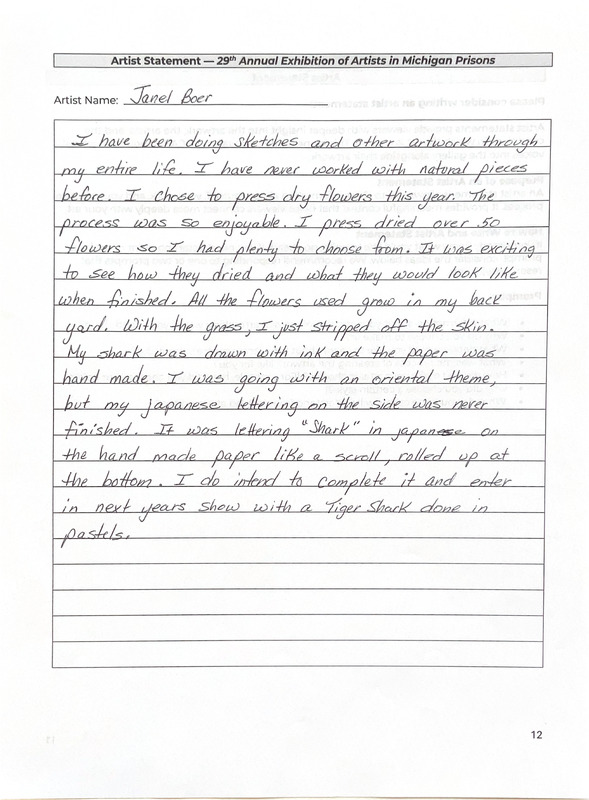 Artist Statement — 29th Annual Exhibition of Artists in Michigan Prisons
Artist Name: Janel Boer
I have been doing sketches and other artwork through
my entire life. I have never worked with natural pieces
before. I chose to press dry flowers this year. The
process was so enjoyable. I press dried over 50
flowers so I had plenty to choose from. It was exciting
to see how they dried and what they would look like
when finished. All the flowers used grow in my back
yard. With the grass, I just stripped off the skin.
My shark was drawn with ink and the paper was
hand made. I was going with an oriental theme,
but my japanese lettering on the side was never
finished. It was lettering "Shark" in japanese on
the hand made paper like a scroll, rolled up at
the bottom. I do intend to complete it and enter
in next years show with a Tiger Shark done in
pastels.
12